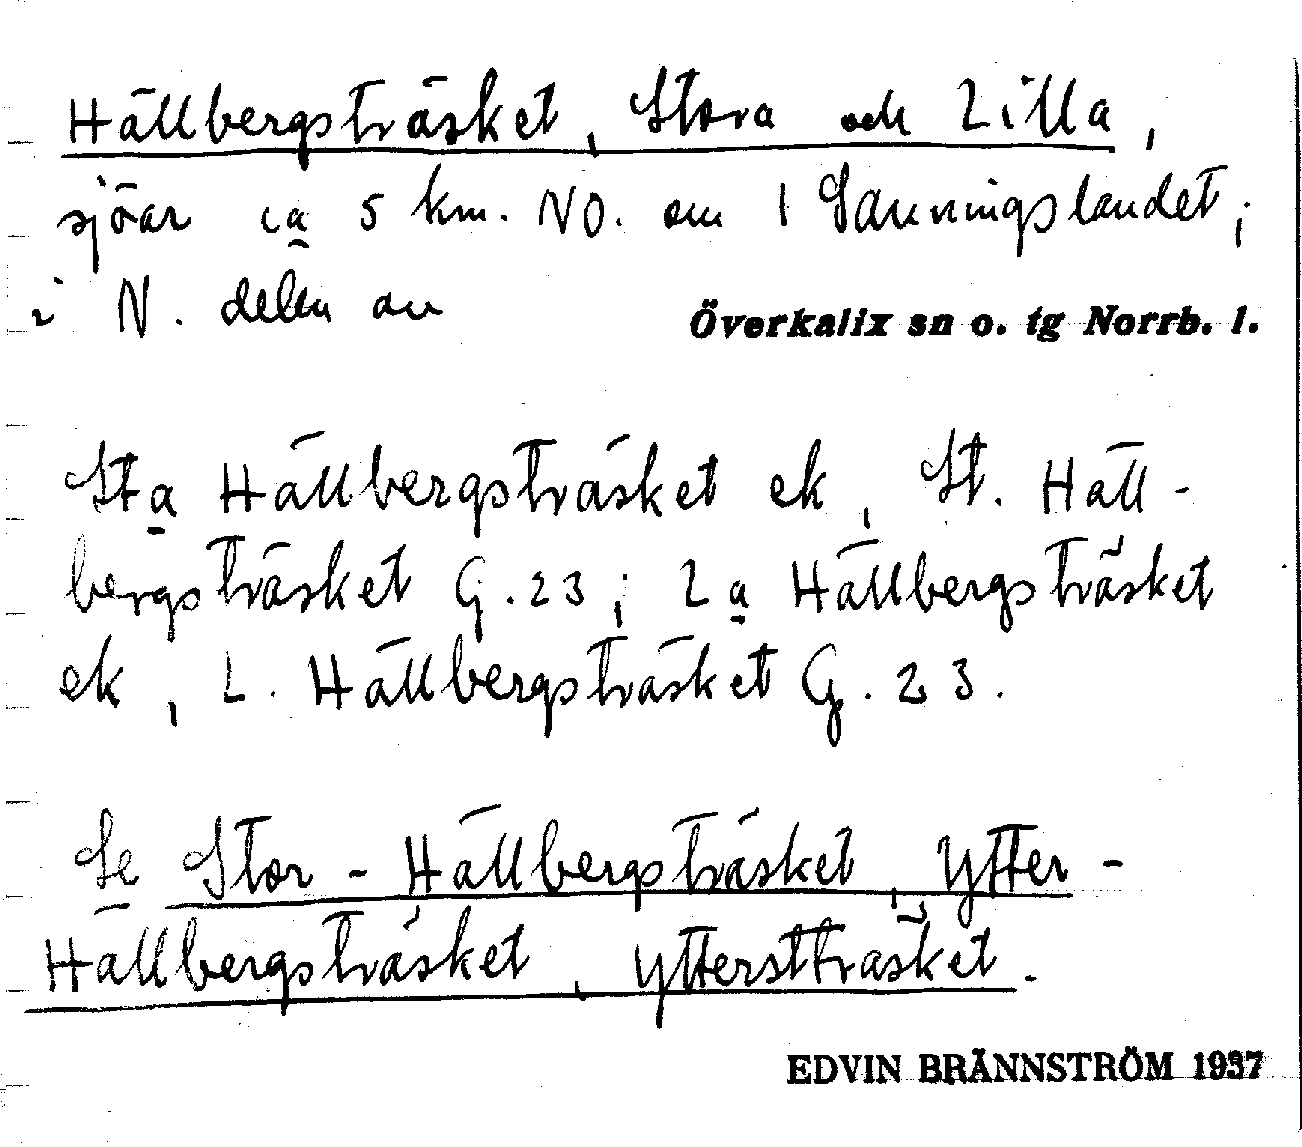 Hällbergsträsket, Stora och Lilla,
sjöar ca 5 km. NO. om 1 Sanningslandet;
i N. delen av
Överkalix sn o. tg Norrb. l.
Sta Hällbergsträsket ek, St. Häll-
bergsträsket G. 23; La Hällbergsträsket
ek, L. Hällbergsträsket G. 23.
Se Stor-Hällbergsträsket, Ytter-
Hällbergsträsket, Yttersträsket.
EDVIN BRÄNNSTRÖM 1937